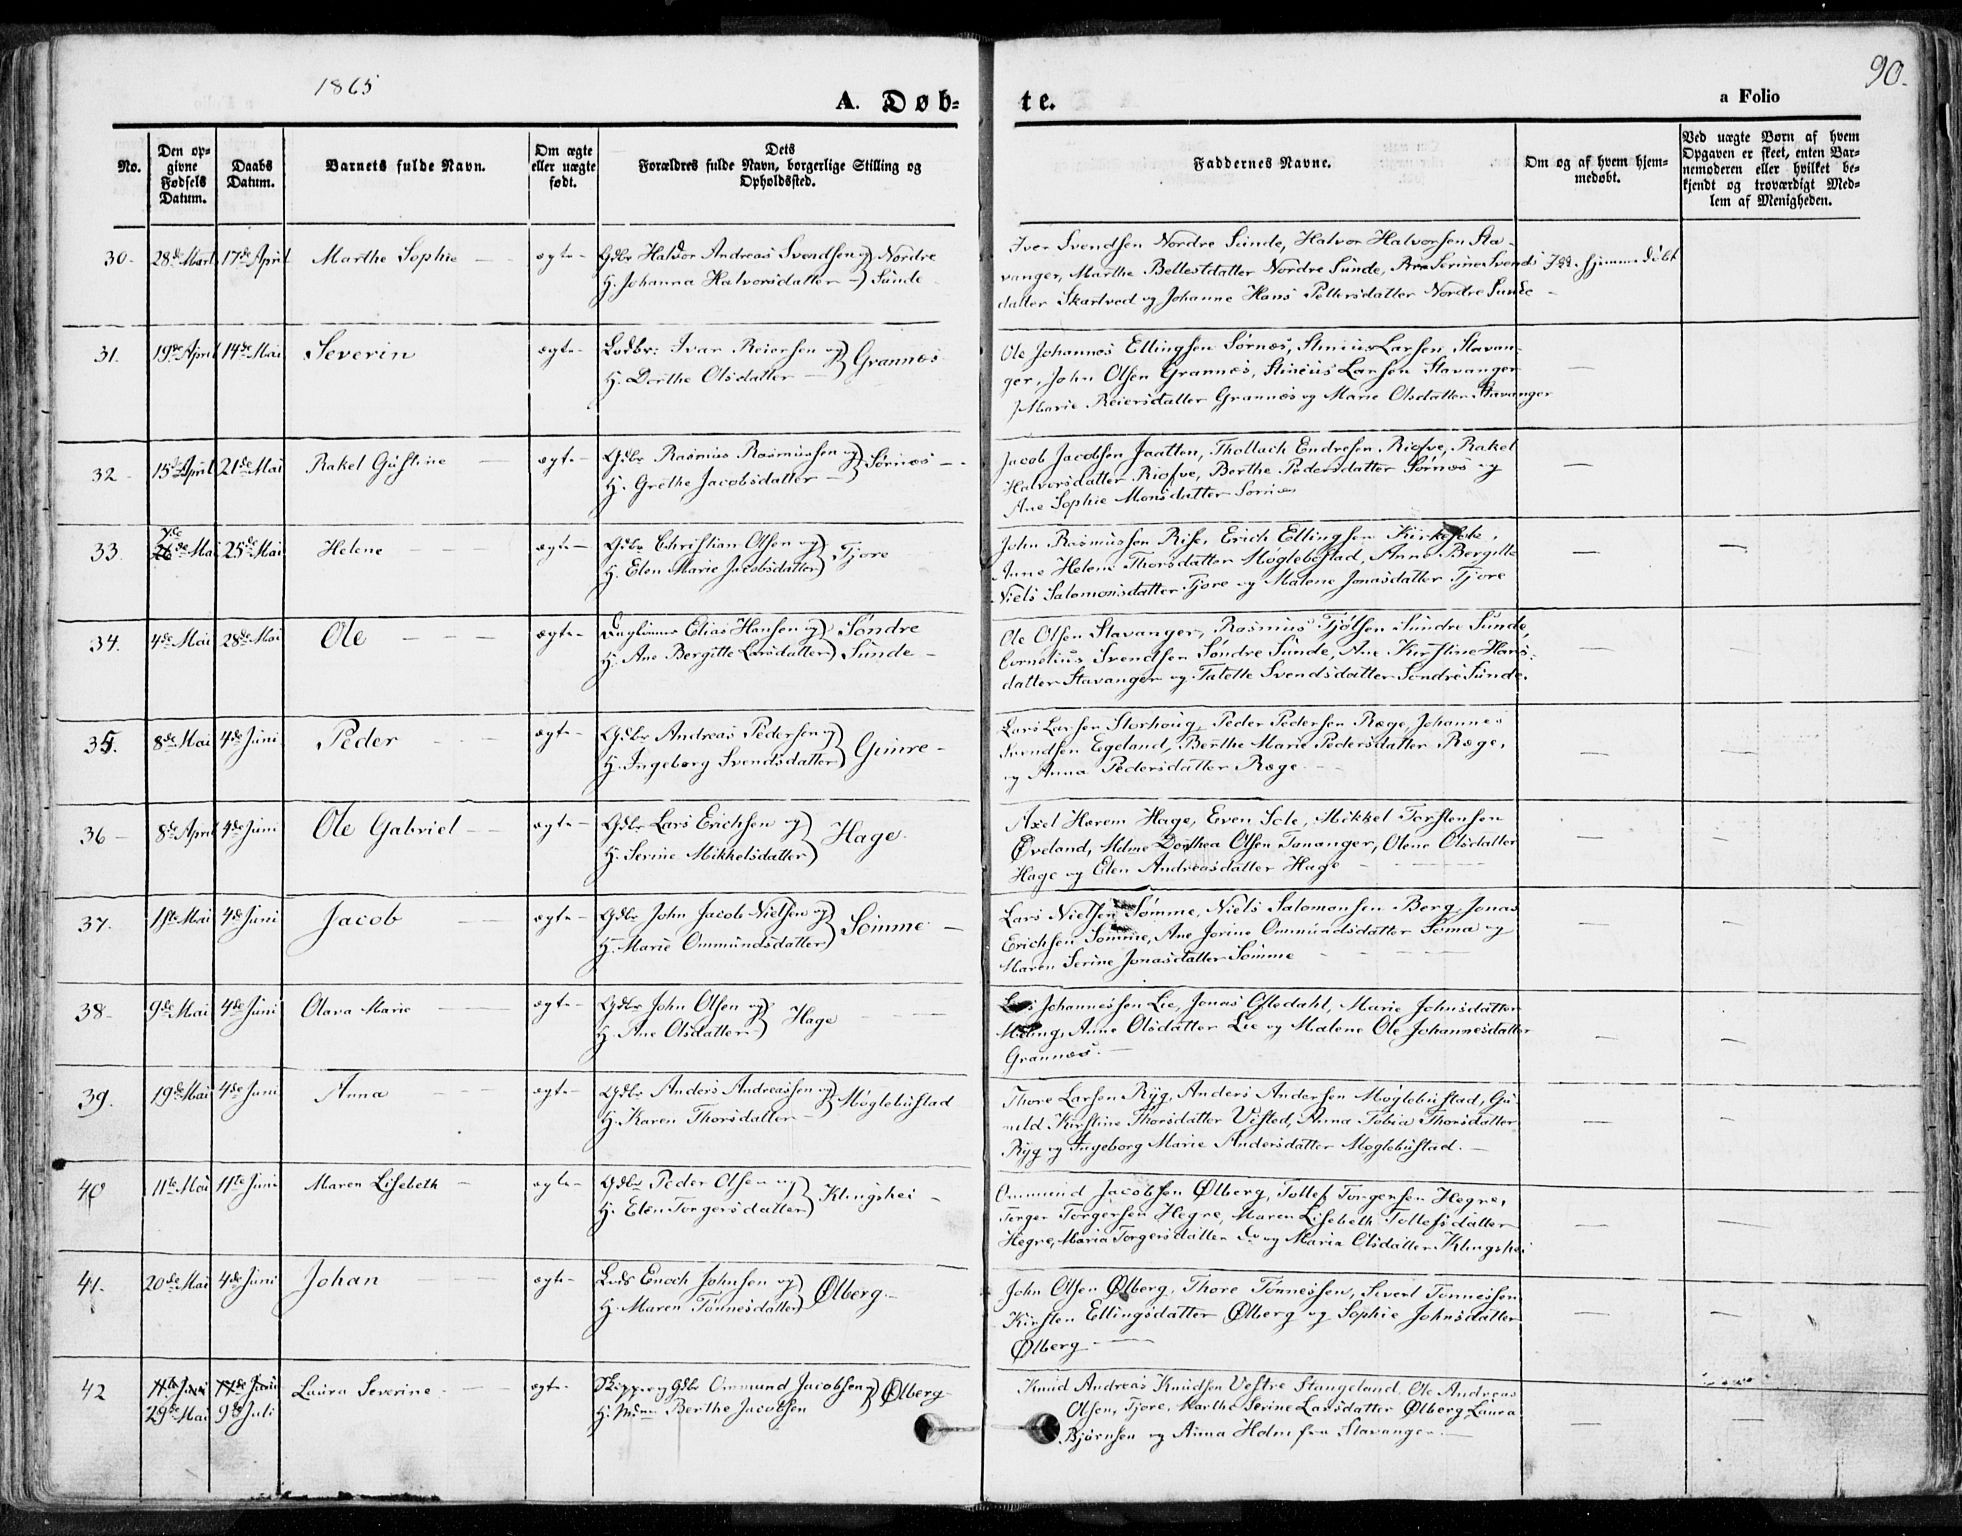 1865
90.
A. Døb=
te.
a Folio
No.
Den op=
givne
Fødsels
Datum.
Daabs
Datum.
Barnets fulde Navn.
Om ægte
eller uægte
født.
Dets
Forældres fulde Navn, borgerlige Stilling og
Opholdssted.
Faddernes Navne.
Om og af hvem hjem=
medøbt.
Ved uægte Børn af hvem
Opgaven er skeet, enten Bar=
nemoderen eller hvilket be=
kjendt og troværdigt Med=
lem af Menigheden.
30- 28de Marts 17de April Marthe Sophie ægte- Gdbr Halvor Andreas Svendsen og Nordre
H. Johanna Halvorsdatter Sunde
Iver Svendsen Nordre Sunde, Halvor Halvorsen Sta-
vanger, Marthe Bellestdatter Nordre Sunde, Serine Svends hjemmedøbt
datter Skartved og Johanne Hans Pettersdatter Nordre Sunde
31. 19de April 14de Mai Severin ægte- Ivar Reiersen og Grannes
H. Dorthe Olsdatter
Ole Johannes Ellingsen Sørnes, Larsen Stavan-
ger, John Olsen Grannes, Stincius Larsen Stavanger
Marie Reiersdatter Grannes og Marie Olsdatter Stavanger
32 15de April 21de Mai Rakel Gustine ægte- Gdbr Rasmus Rasmussen og Sørnes
H. Grethe Jacobsdatter
Jacob Jacobsen Jaatten, Thollach Endresen Riofve, Rakel
Halvorsdatter Riofve, Berthe Pedersdatter Sørnes og
Ane Sophie Monsdatter Sørnes
33. 26de Mai 25de Mai Helene ægte- Gdbr Christian Olsen og Tjore
H. Elen Marie Jacobsdatter
John Rasmussen Rise, Erich Ellingsen
Anne Helene Thorsdatter Møglebostad, Anne Bergitte
Niels Salomonsdatter Tjore og Malene Jonasdatter Tjore
34. 4de Mai 28de Mai Ole ægte- Elias Hansen og Søndre
H. Ane Bergitte Larsdatter Sunde
Ole Olsen Stavanger, Rasmus Tjølsen Sundre Sunde,
Cornelius Svendsen Søndre Sunde, Ane Kirstine Hans=
datter Stavanger og Talette Svendsdatter Søndre Sunde.
35. 8de Mai 4de Juni Peder ægte- Gdbr Andreas Pedersen og Gimre
H. Ingeborg Svendsdatter
Lars Larsen Storhoug, Peder Pedersen Ræge, Johannes
Svendsen Egeland, Berthe Marie Pedersdatter Ræge,
og Anna Pedersdatter Ræge.
36 8de April 4de Juni Ole Gabriel ægte- Gdbr Lars Erichsen og Hage
H. Serine Mikkelsdatter
Axel Hærem Hage, Even Sole, Mikkel Torstensen
Øveland, Dorthea Olsen Tananger, Olene Olsdatter
Hage og Elen Andreasdatter Hage
37. 1ste Mai 4de Juni Jacob ægte- Gdbr John Jacob Nielsen og Sömme
H. Marie Ommundsdatter
Lars Nielsen Sömme, Niels Salomonsen Berg, Jonas
Erichsen Sömme, Ane Jorine Ommundsdatter Soma og
Maren Serine Jonasdatter Sömme
38- 9de Mai 4de Juni Olava Marie ægte- Gdbr John Olsen og Hage
H. Ane Olsdatter
Johannessen Lie, Jonas Oftedahl, Marie Johnsdatter
Meling, Anne Olsdatter Lie og Malene Ole Johannesdatter
Grannes.
39. 19de Mai 4de Juni Anna ægte- Gdbr Anders Andreassen og Møglebustad
H. Karen Thorsdatter
Thore Larsen Ryg, Anders Andersen Møglebustad, Gu-
nild Kirstine Thorsdatter Visted, Anna Tobia Thorsdatter
Ryg og Ingeborg Marie Andersdatter Møglebustad.
40 11te Mai 11te Juni Maren Lisebeth ægte- Gdbr Peder Olsen og Klingshei
H. Elen Torgersdatter
Ommund Jacobsen Ølberg, Tollef Torgersen Hegre,
Torger Torgersen Hegre, Maren Lisebeth Tollefsdatter
Hegre, Maria Torgersdatter do og Maria Olsdatter Klingshei
41. 20de Mai 4de Juni Johan ægte- Enoch Johnsen og Ølberg
H. Maren Tønnesdatter
John Olsen Ølberg, Thore Tønnessen, Sivert Tønnessen
Kirsten Ellingsdatter Ølberg og Sophie Johnsdatter
Ølberg
42 11te Juni 17de Juni Laura Severine ægte- Skipper og Gdbr Ommund Jacobsen og Ølberg
29de Mai 9de Juli H. Berthe Jacobsen
Knud Andreas Knudsen Vestre Stangeland, Ole Andreas
Olsen, Tjore, Marthe Serine Larsdatter Ølberg, Laura
Bjørnsen og Anna Holm fra Stavanger.